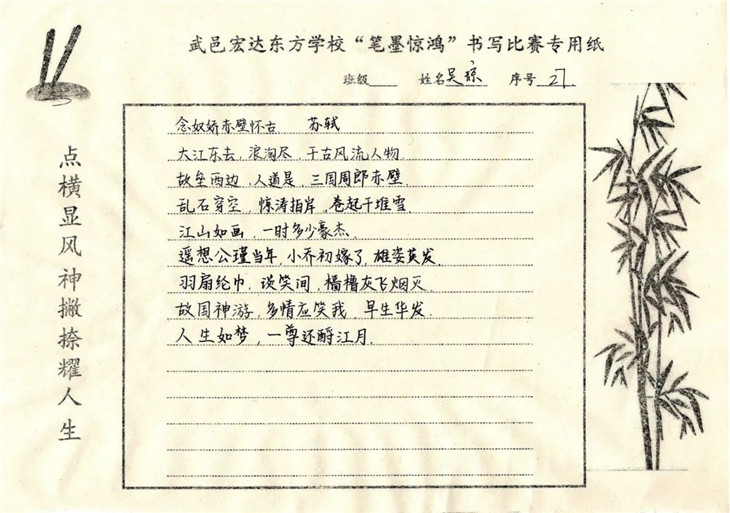 武邑宏达东方学校“笔墨惊鸿”书写比赛专用纸
班级 姓名吴琼 序号 27
点横显风神撇捺耀人生
念奴娇赤壁怀古 苏轼
大江东去,浪淘尽,千古风流人物.
故垒西边,人道是,三国周郎赤壁.
乱石穿空,惊涛拍岸,卷起千堆雪.
江山如画,一时多少豪杰.
遥想公瑾当年,小乔初嫁了,雄姿英发.
羽扇纶巾,谈笑间,樯橹灰飞烟灭.
故国神游,多情应笑我,早生华发.
人生如梦,一尊还酹江月.